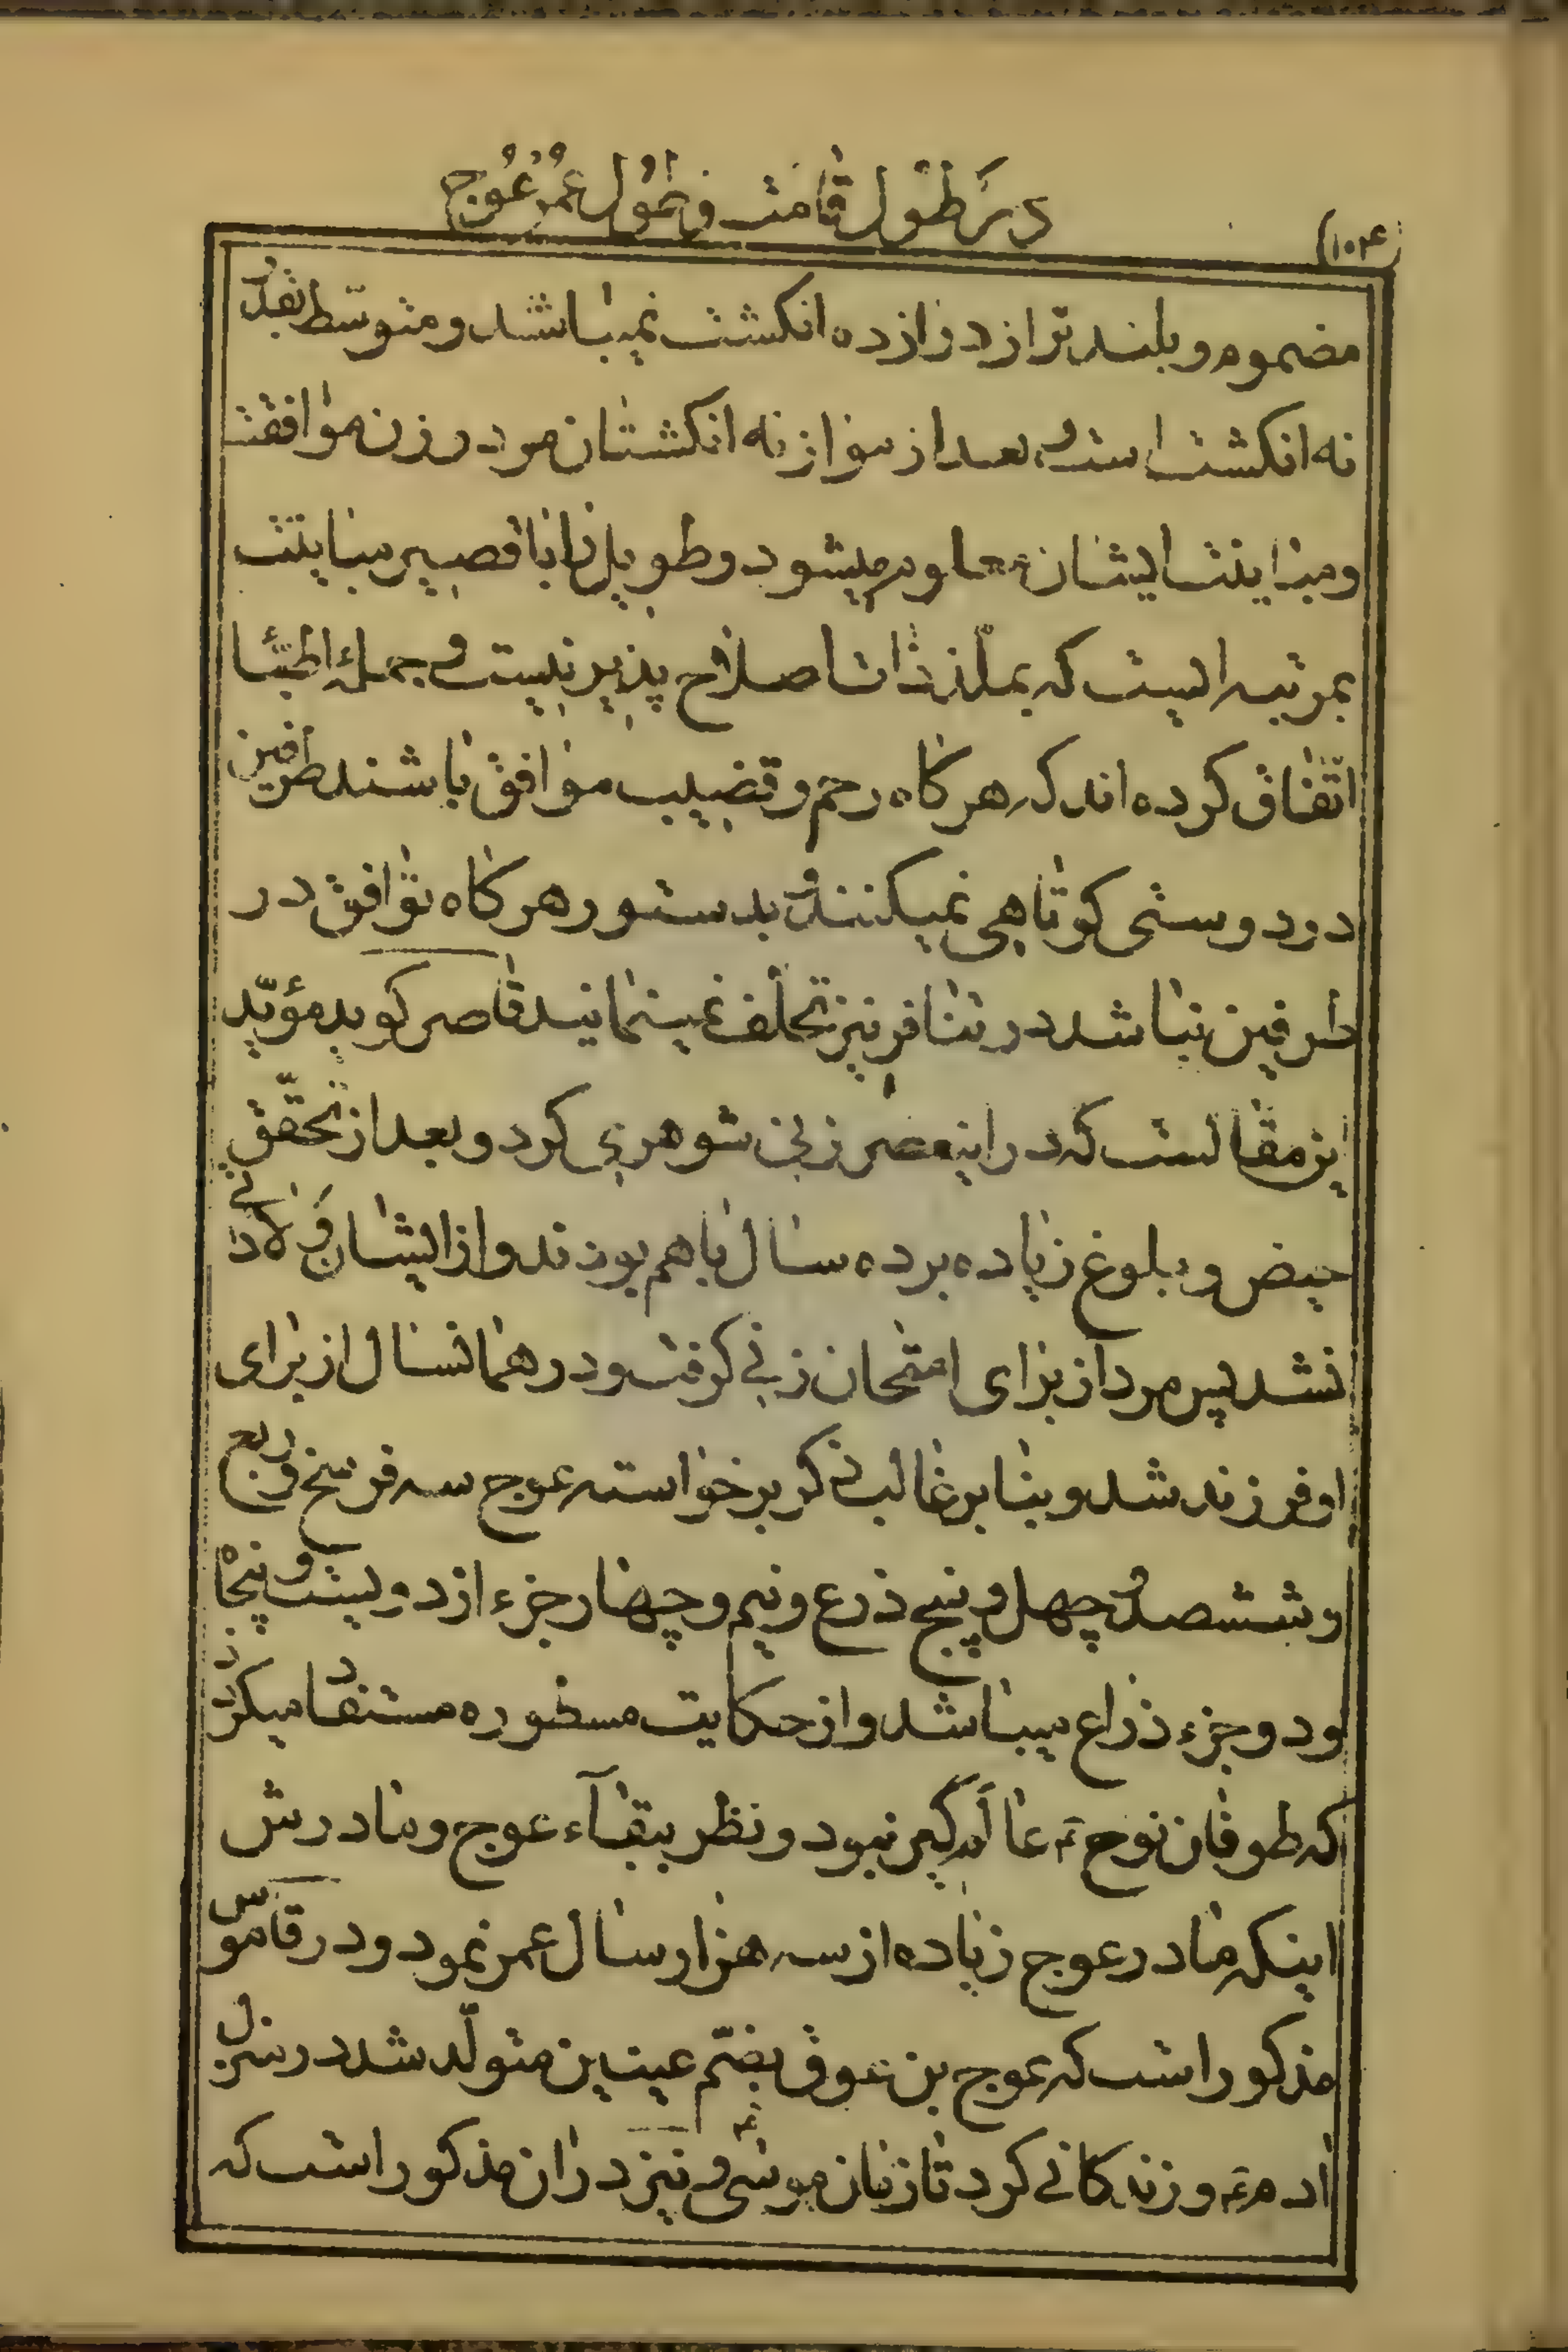 در طول قامت و طول عمر عوج
(۱۰۴)
مضموم و بلند تر از دوازده انکشت نمیباشد و متوسّط بقدر
نه انکشت است و بعد از موازنه انکشتان مرد و زن موافقت
و مباینت ایشان معلوم میشود و طویل را با قصیر مباینت
بمرتبه ایست که بملذذات اصلاح پذیر نیست و جملهٔ اطبّا
اتّفاق کرده اند که هر کاه رحم و قضیب موافق باشند طرفین
در دوستی کوتاهی نمیکنند و بدستور هر کاه توافق در
طرفین نباشد در تنافر نیز تخلّف نمینمایند قاصر کوید مؤیّد
ین مقالست که در اینعصر زنی شوهری کرد و بعد از تحقّق
حیض و بلوغ زیاده بر ده سال با هم بودند و از ایشان ولادتی
نشد پس مرد از برای امتحان زنی کرفت و در همانسال از برای
او فرزند شد و بنا بر غالب ذکر برخواسته عوج سه فرسخ و ربع
و ششصد و چهل و پنج ذرع و نیم و چهار جزء از دویست و پنجاه
و دو جزء ذراع میباشد و از حکایت مسطوره مستفاد میکردد
که طوفان نوح ع عالم کیر نبود و نظر ببقآء عوج و مادرش
اینکه مادر عوج زیاده از سه هزار سال عمر نمود و در قاموس
مذکور است که عوج بن عوق بضمّ عینین متولّد شد در منزل
ادم ع و زندکانی کرد تا زمان موسی ع و نیز در ان مذکور است که